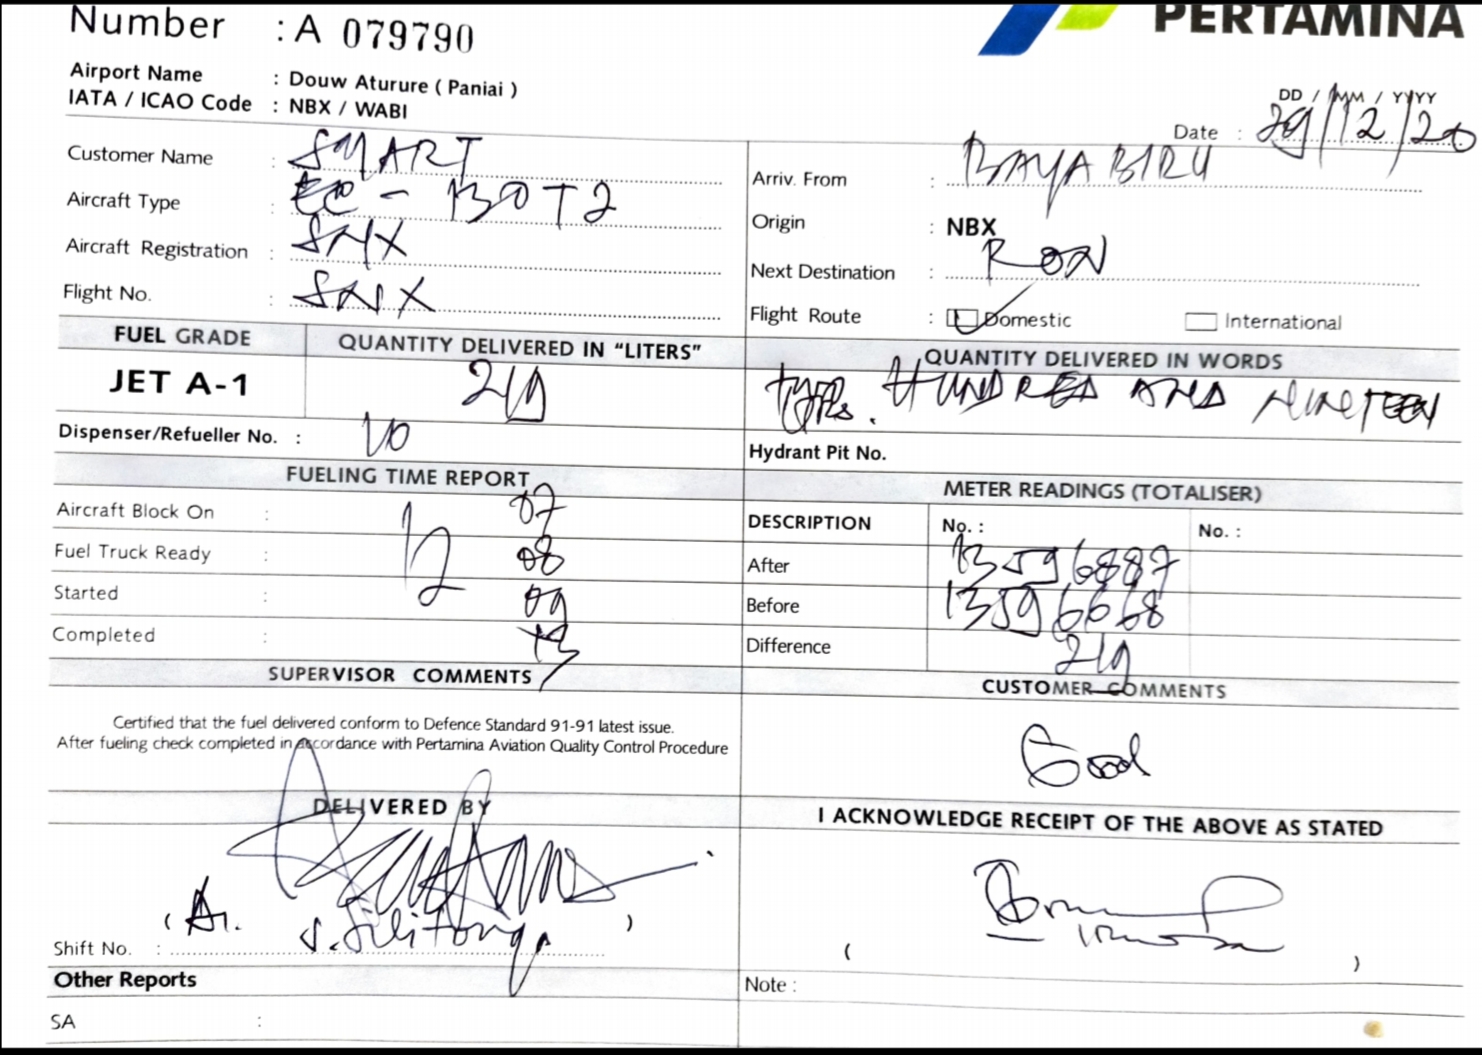 Number : A 079790
PERTAMINA
Airport Name : Douw Aturure ( Paniai )
IATA / ICAO Code : NBX / WABI
DD / MM / YYYY
Date : 29/12/20
Customer Name : SMART
Aircraft Type : EC - 130T2
Aircraft Registration : SNX
Flight No. : SNX
Arriv. From : BAYA BIRU
Origin : NBX
Next Destination : RON
Flight Route : Domestic International
FUEL GRADE QUANTITY DELIVERED IN "LITERS" QUANTITY DELIVERED IN WORDS
JET A-1 219 HUNDRED AND NINETEEN
Dispenser/Refueller No. : Hydrant Pit No.
FUELING TIME REPORT METER READINGS (TOTALISER)
DESCRIPTION No. : No. :
Aircraft Block On : 12 07
Fuel Truck Ready : 08
Started : 09
Completed : 13
After 13596887
Before 13596668
Difference 219
SUPERVISOR COMMENTS CUSTOMER COMMENTS
Certified that the fuel delivered conform to Defence Standard 91-91 latest issue.
After fueling check completed in accordance with Pertamina Aviation Quality Control Procedure
Good
DELIVERED BY I ACKNOWLEDGE RECEIPT OF THE ABOVE AS STATED
Shift No. :
Other Reports Note :
SA :